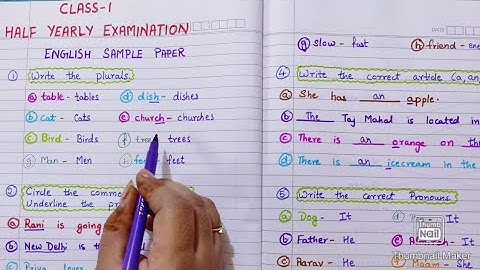 CLASS-I
HALF YEARLY EXAMINATION
ENGLISH SAMPLE PAPER
① Write the plurals.
ⓐ table - tables ⓓ dish - dishes
ⓑ cat - Cats ⓔ church - churches
ⓒ Bird - Birds ⓕ tree - trees
ⓖ Man - Men feet
② Circle the
Underline the
ⓐ Rani is going
ⓑ New Delhi is
Priya loves
ⓖ slow - fast ⓗ friend -
④ Write the correct article (a, an,
ⓐ She has an apple.
ⓑ The Taj Mahal is located in
ⓒ There is an orange on
ⓓ There is an icecream in the
⑤ Write the correct Pronouns
ⓐ Dog - It It
ⓑ Father - He It
ⓒ Aarav - He Maam - She
Thumb
Nail
Thumbnail Maker